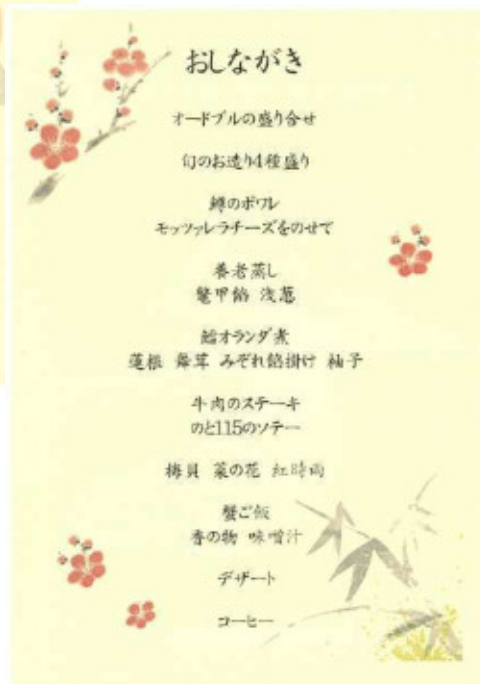 おしながき
オードブルの盛り合せ
旬のお造り4種盛り
鱒のポワレ
モッツァレラチーズをのせて
養老蒸し
鼈甲餡 浅葱
鱈オランダ煮
蓮根 舞茸 みぞれ餡掛け 柚子
牛肉のステーキ
のと115のソテー
梅貝 菜の花 紅時雨
蟹ご飯
香の物 味噌汁
デザート
コーヒー